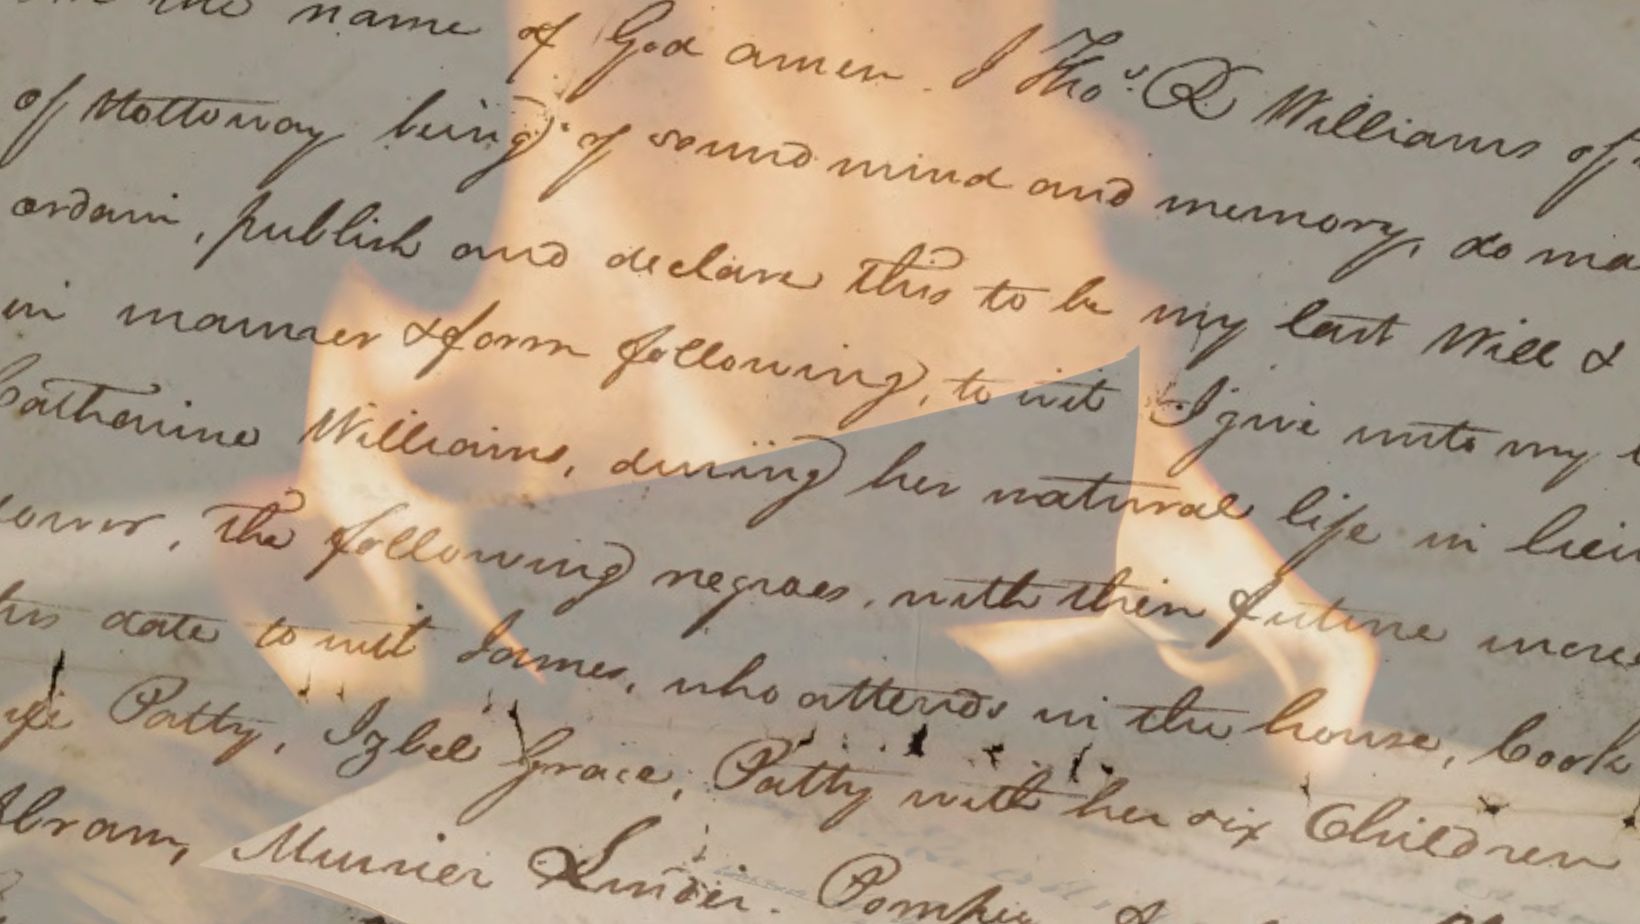 the name of God amen. I Thos. R Williams of
of Nottoway being of sound mind and memory, do ma
ordain, publish and declare this to be my last Will &
in manner & form following, to wit I give unto my
Catharine Williams, during her natural life in lieu
ower, the following negroes, with their future incre
his date to wit James, who attends in the house, Cook
Patty, Izbel Grace, Patty with her six Children
Abram,